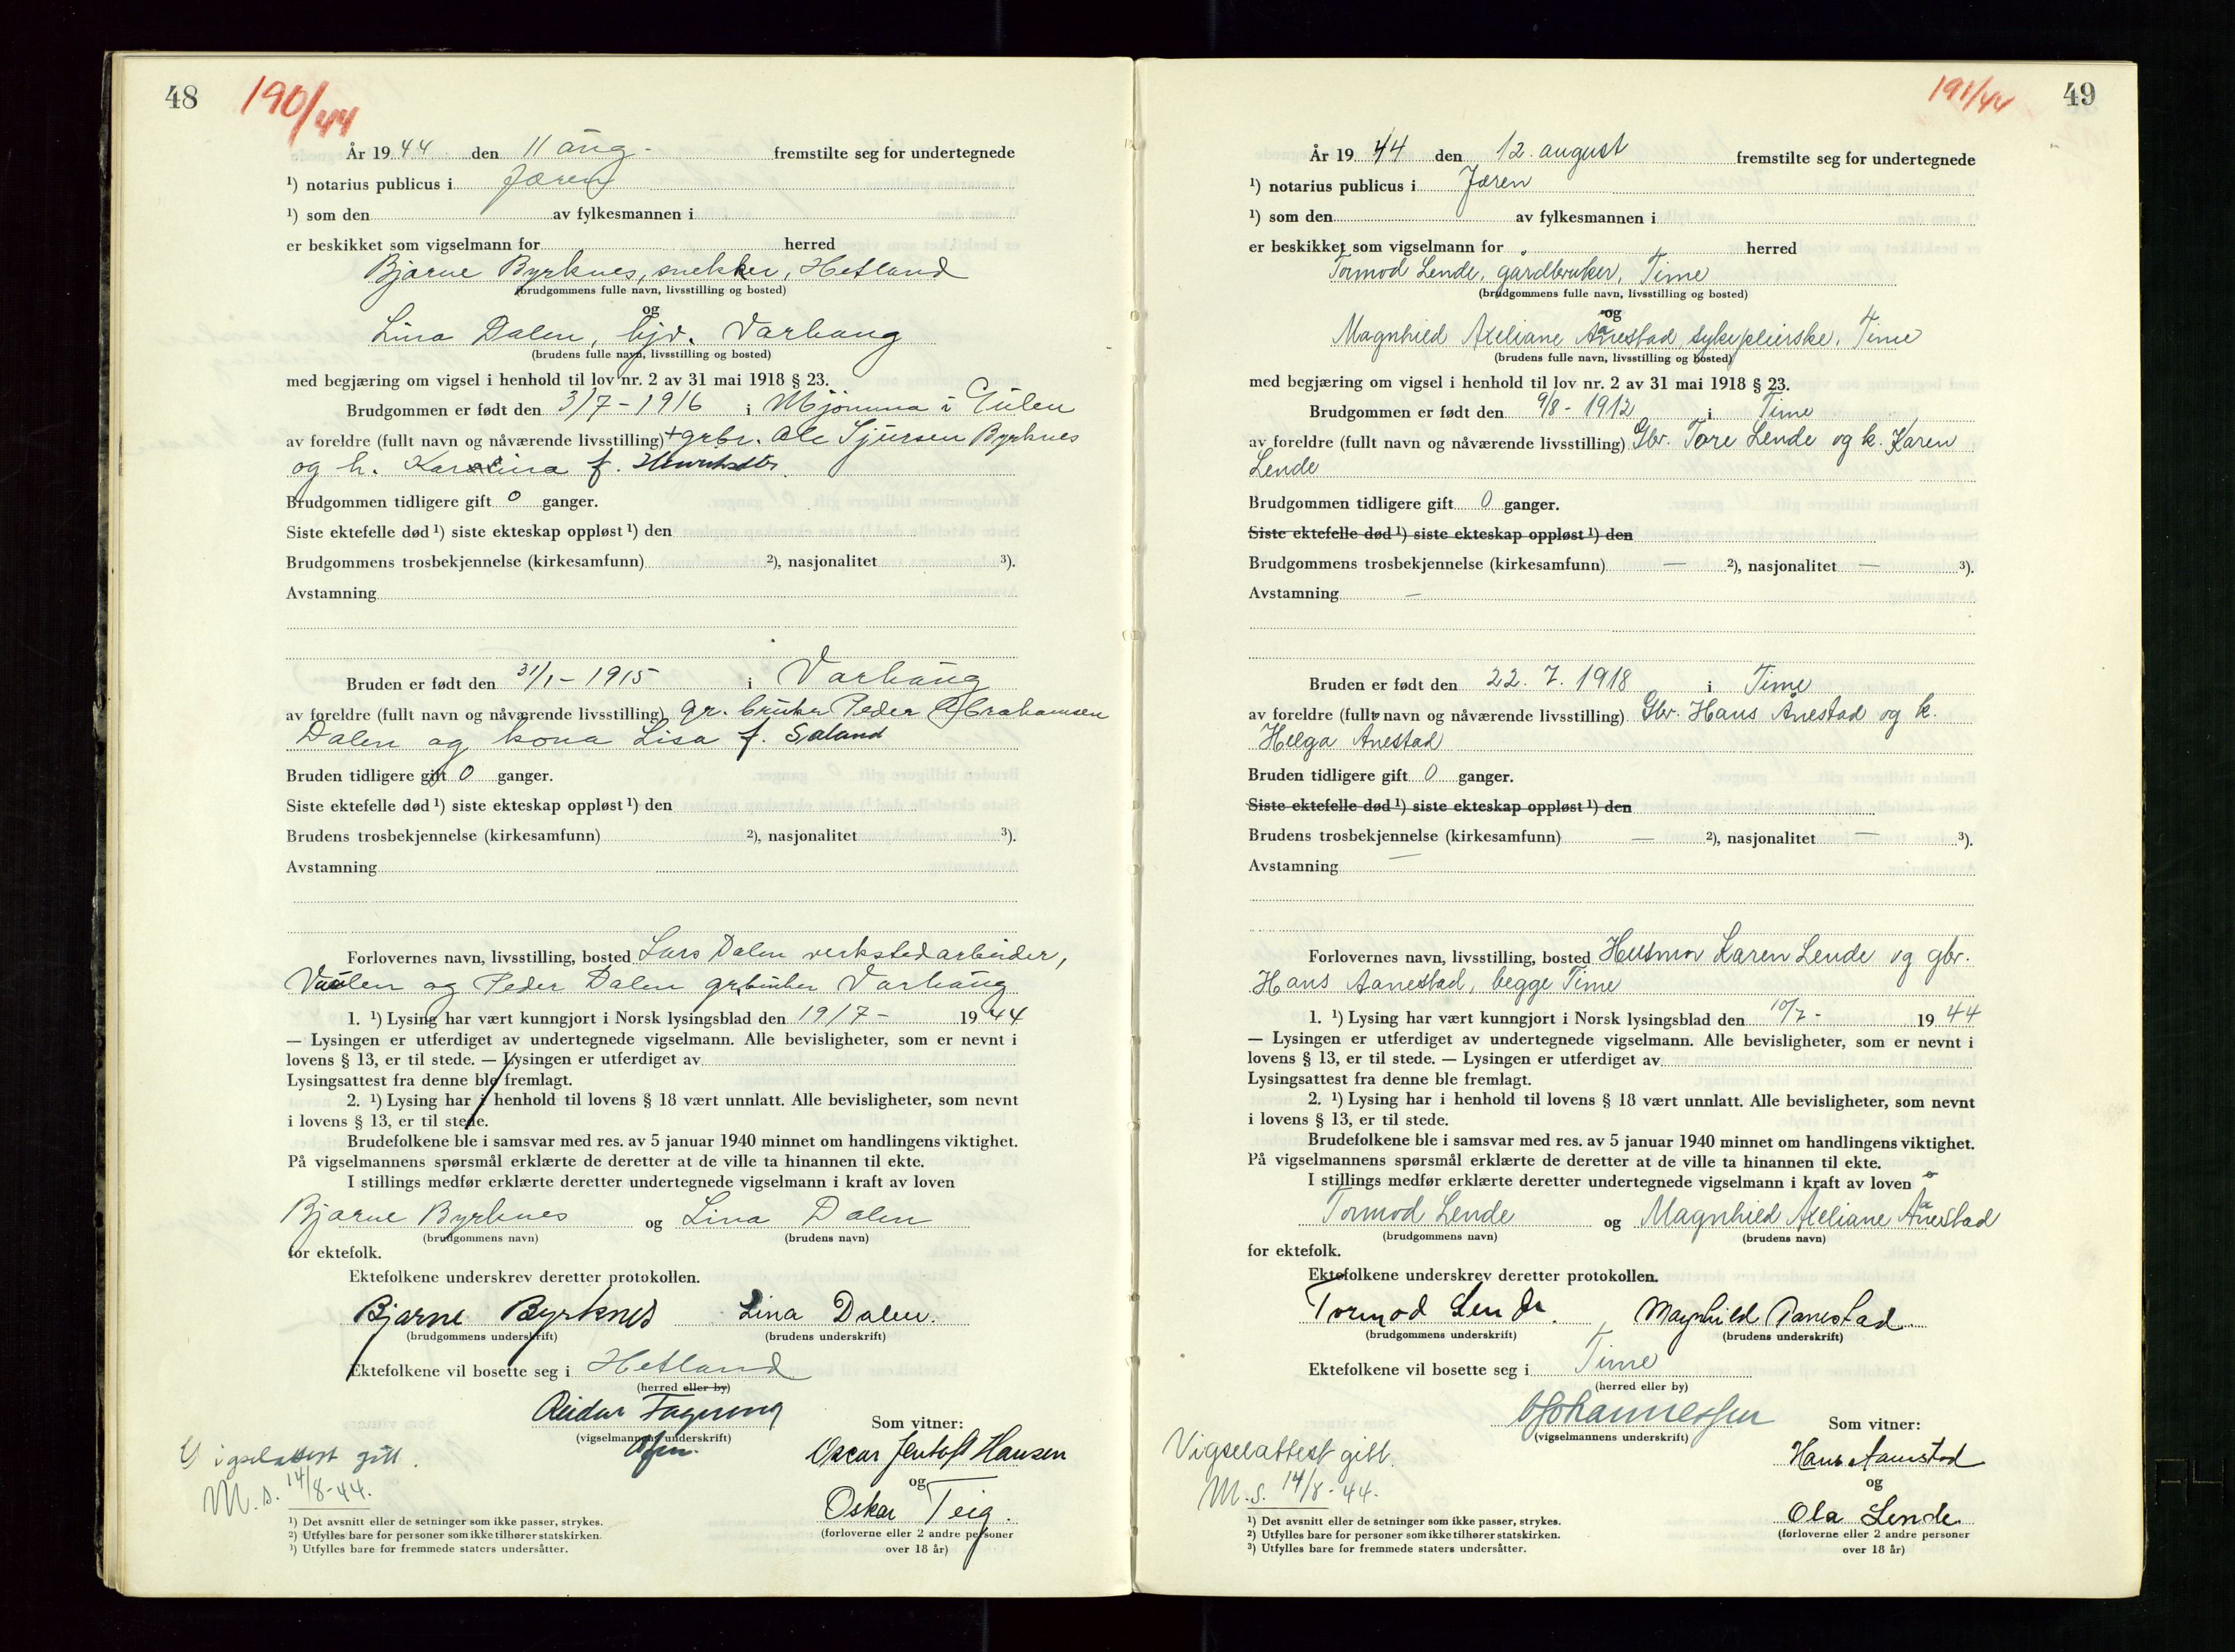 48
190/44
År 19 44 den 11 aug. fremstilte seg for undertegnede
¹) notarius publicus i Jæren
¹) som den av fylkesmannen i
er beskikket som vigselmann for herred
Bjarne Byrknes, snekker, Hetland
(brudgommens fulle navn, livsstilling og bosted)
og
Lina Dalen, hjv. Varhaug
(brudens fulle navn, livsstilling og bosted)
med begjæring om vigsel i henhold til lov nr. 2 av 31 mai 1918 § 23.
Brudgommen er født den 3/7 - 1916 i Mjømna i Gulen
av foreldre (fullt navn og nåværende livsstilling) + grbr. Ole Sjursen Byrknes
og h. Karolina f.
Brudgommen tidligere gift 0 ganger.
Siste ektefelle død ¹) siste ekteskap oppløst ¹) den
Brudgommens trosbekjennelse (kirkesamfunn) ²), nasjonalitet ³).
Avstamning
Bruden er født den 31/1 - 1915 i Varhaug
av foreldre (fullt navn og nåværende livsstilling) gr. bruker Peder Abrahamsen
Dalen og kona Lisa f. Saland
Bruden tidligere gift 0 ganger.
Siste ektefelle død ¹) siste ekteskap oppløst ¹) den
Brudens trosbekjennelse (kirkesamfunn) ²), nasjonalitet ³).
Avstamning
Forlovernes navn, livsstilling, bosted Lars Dalen verkstedarbeider,
Vaulen og Peder Dalen grbruker Varhaug
1. ¹) Lysing har vært kunngjort i Norsk lysingsblad den 19/7 - 19 44
— Lysingen er utferdiget av undertegnede vigselmann. Alle bevisligheter, som er nevnt i
lovens § 13, er til stede. — Lysingen er utferdiget av
Lysingsattest fra denne ble fremlagt.
2. ¹) Lysing har i henhold til lovens § 18 vært unnlatt. Alle bevisligheter, som nevnt
i lovens § 13, er til stede.
Brudefolkene ble i samsvar med res. av 5 januar 1940 minnet om handlingens viktighet.
På vigselmannens spørsmål erklærte de deretter at de ville ta hinannen til ekte.
I stillings medfør erklærte deretter undertegnede vigselmann i kraft av loven
Bjarne Byrknes og Lina Dalen
(brudgommens navn) (brudens navn)
for ektefolk.
Ektefolkene underskrev deretter protokollen.
Bjarne Byrknes Lina Dalen.
(brudgommens underskrift) (brudens underskrift)
Ektefolkene vil bosette seg i Hetland
(herred eller by)
Reidar Fagereng
(vigselmannens underskrift)
Som vitner:
Oscar Jentoft Hansen
og
Oskar Teig.
(forloverne eller 2 andre personer
over 18 år)
Vigselattest gitt.
M. s. 14/8-44.
¹) Det avsnitt eller de setninger som ikke passer, strykes.
²) Utfylles bare for personer som ikke tilhører statskirken.
³) Utfylles bare for fremmede staters undersåtter.
49
191/44
År 19 44 den 12. august fremstilte seg for undertegnede
¹) notarius publicus i Jæren
¹) som den av fylkesmannen i
er beskikket som vigselmann for herred
Tormod Lende, gardbruker, Time
(brudgommens fulle navn, livsstilling og bosted)
og
Magnhild Axeliane Aanestad, sykepleierske, Time
(brudens fulle navn, livsstilling og bosted)
med begjæring om vigsel i henhold til lov nr. 2 av 31 mai 1918 § 23.
Brudgommen er født den 9/8 - 1912 i Time
av foreldre (fullt navn og nåværende livsstilling) Gbr. Tore Lende og k. Karen
Lende
Brudgommen tidligere gift 0 ganger.
Siste ektefelle død ¹) siste ekteskap oppløst ¹) den
Brudgommens trosbekjennelse (kirkesamfunn) — ²), nasjonalitet — ³).
Avstamning —
Bruden er født den 22. 7. 1918 i Time
av foreldre (fullt navn og nåværende livsstilling) Gbr. Hans Ånestad og k.
Helga Anestad
Bruden tidligere gift 0 ganger.
Siste ektefelle død ¹) siste ekteskap oppløst ¹) den
Brudens trosbekjennelse (kirkesamfunn) — ²), nasjonalitet — ³).
Avstamning —
Forlovernes navn, livsstilling, bosted Husmor Karen Lende og gbr.
Hans Aanestad, begge Time
1. ¹) Lysing har vært kunngjort i Norsk lysingsblad den 10/7 - 19 44
— Lysingen er utferdiget av undertegnede vigselmann. Alle bevisligheter, som er nevnt i
lovens § 13, er til stede. — Lysingen er utferdiget av
Lysingsattest fra denne ble fremlagt.
2. ¹) Lysing har i henhold til lovens § 18 vært unnlatt. Alle bevisligheter, som nevnt
i lovens § 13, er til stede.
Brudefolkene ble i samsvar med res. av 5 januar 1940 minnet om handlingens viktighet.
På vigselmannens spørsmål erklærte de deretter at de ville ta hinannen til ekte.
I stillings medfør erklærte deretter undertegnede vigselmann i kraft av loven
Tormod Lende og Magnhild Axeliane Aanestad
(brudgommens navn) (brudens navn)
for ektefolk.
Ektefolkene underskrev deretter protokollen.
Tormod Lende. Magnhild Aanestad.
(brudgommens underskrift) (brudens underskrift)
Ektefolkene vil bosette seg i Time
(herred eller by)
Johannessen
(vigselmannens underskrift)
Som vitner:
Hans Aanestad
og
Ola Lende
(forloverne eller 2 andre personer
over 18 år)
Vigselattest gitt.
M. s. 14/8 - 44.
¹) Det avsnitt eller de setninger som ikke passer, strykes.
²) Utfylles bare for personer som ikke tilhører statskirken.
³) Utfylles bare for fremmede staters undersåtter.